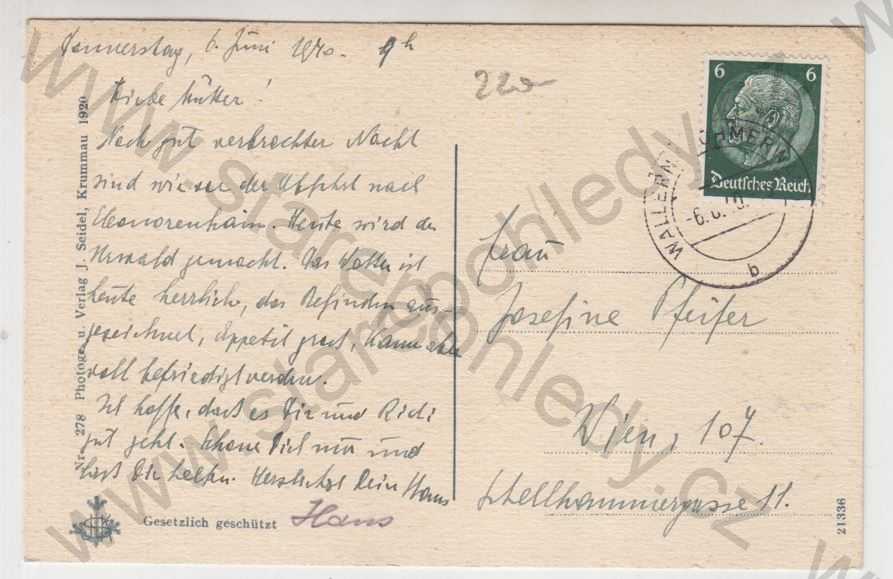 Donnerstag, 6. Juni 1940. 9h
Liebe Mutter!
Nach gut verbrachter Nacht
sind wir vor der Abfahrt nach
Eleonorenhain. Heute wird der
Urwald gemacht. Das Wetter ist
heute herrlich, das Befinden aus-
gezeichnet, Appetit gross, kann aber
voll befriedigt werden.
Ich hoffe, dass es Dir und Richi
gut geht. Schone Dich nur und
lass Dir helfen. Herzlichst Dein Hans
Hans
Gesetzlich geschützt
Nr. 278 Photogr. u. Verlag J. Seidel, Krummau 1920
220-
6 6
Deutsches Reich
WALLERN
-6.6.40.
b
Frau
Josefine Pfeifer
Wien, 107.
Schellhammergasse 11.
21336
www.starepohledy.cz
www.starepohledy.cz